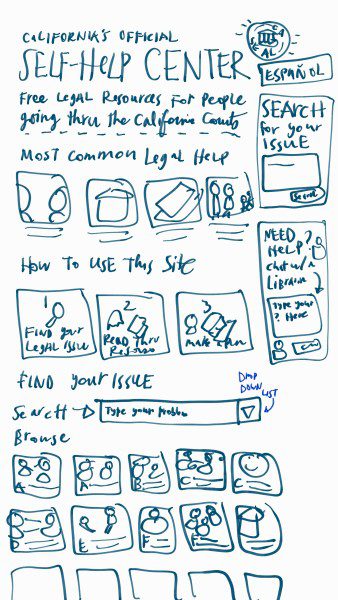 CALIFORNIA'S OFFICIAL
SELF-HELP CENTER
CA
SEAL
ESPAÑOL
Free Legal Resources For People
going thru the California Courts
SEARCH
for your
ISSUE
Search
Most Common Legal Help
NEED
HELP?
chat w/ a
Librarian
Type your
? Here
How To Use This Site
1
Find your
Legal Issue
2
Read thru
3
Make a Plan
FIND your ISSUE
DROP
DOWN
LIST
Search
Type your problem
Browse
A
A
B
C
C
D
E
F